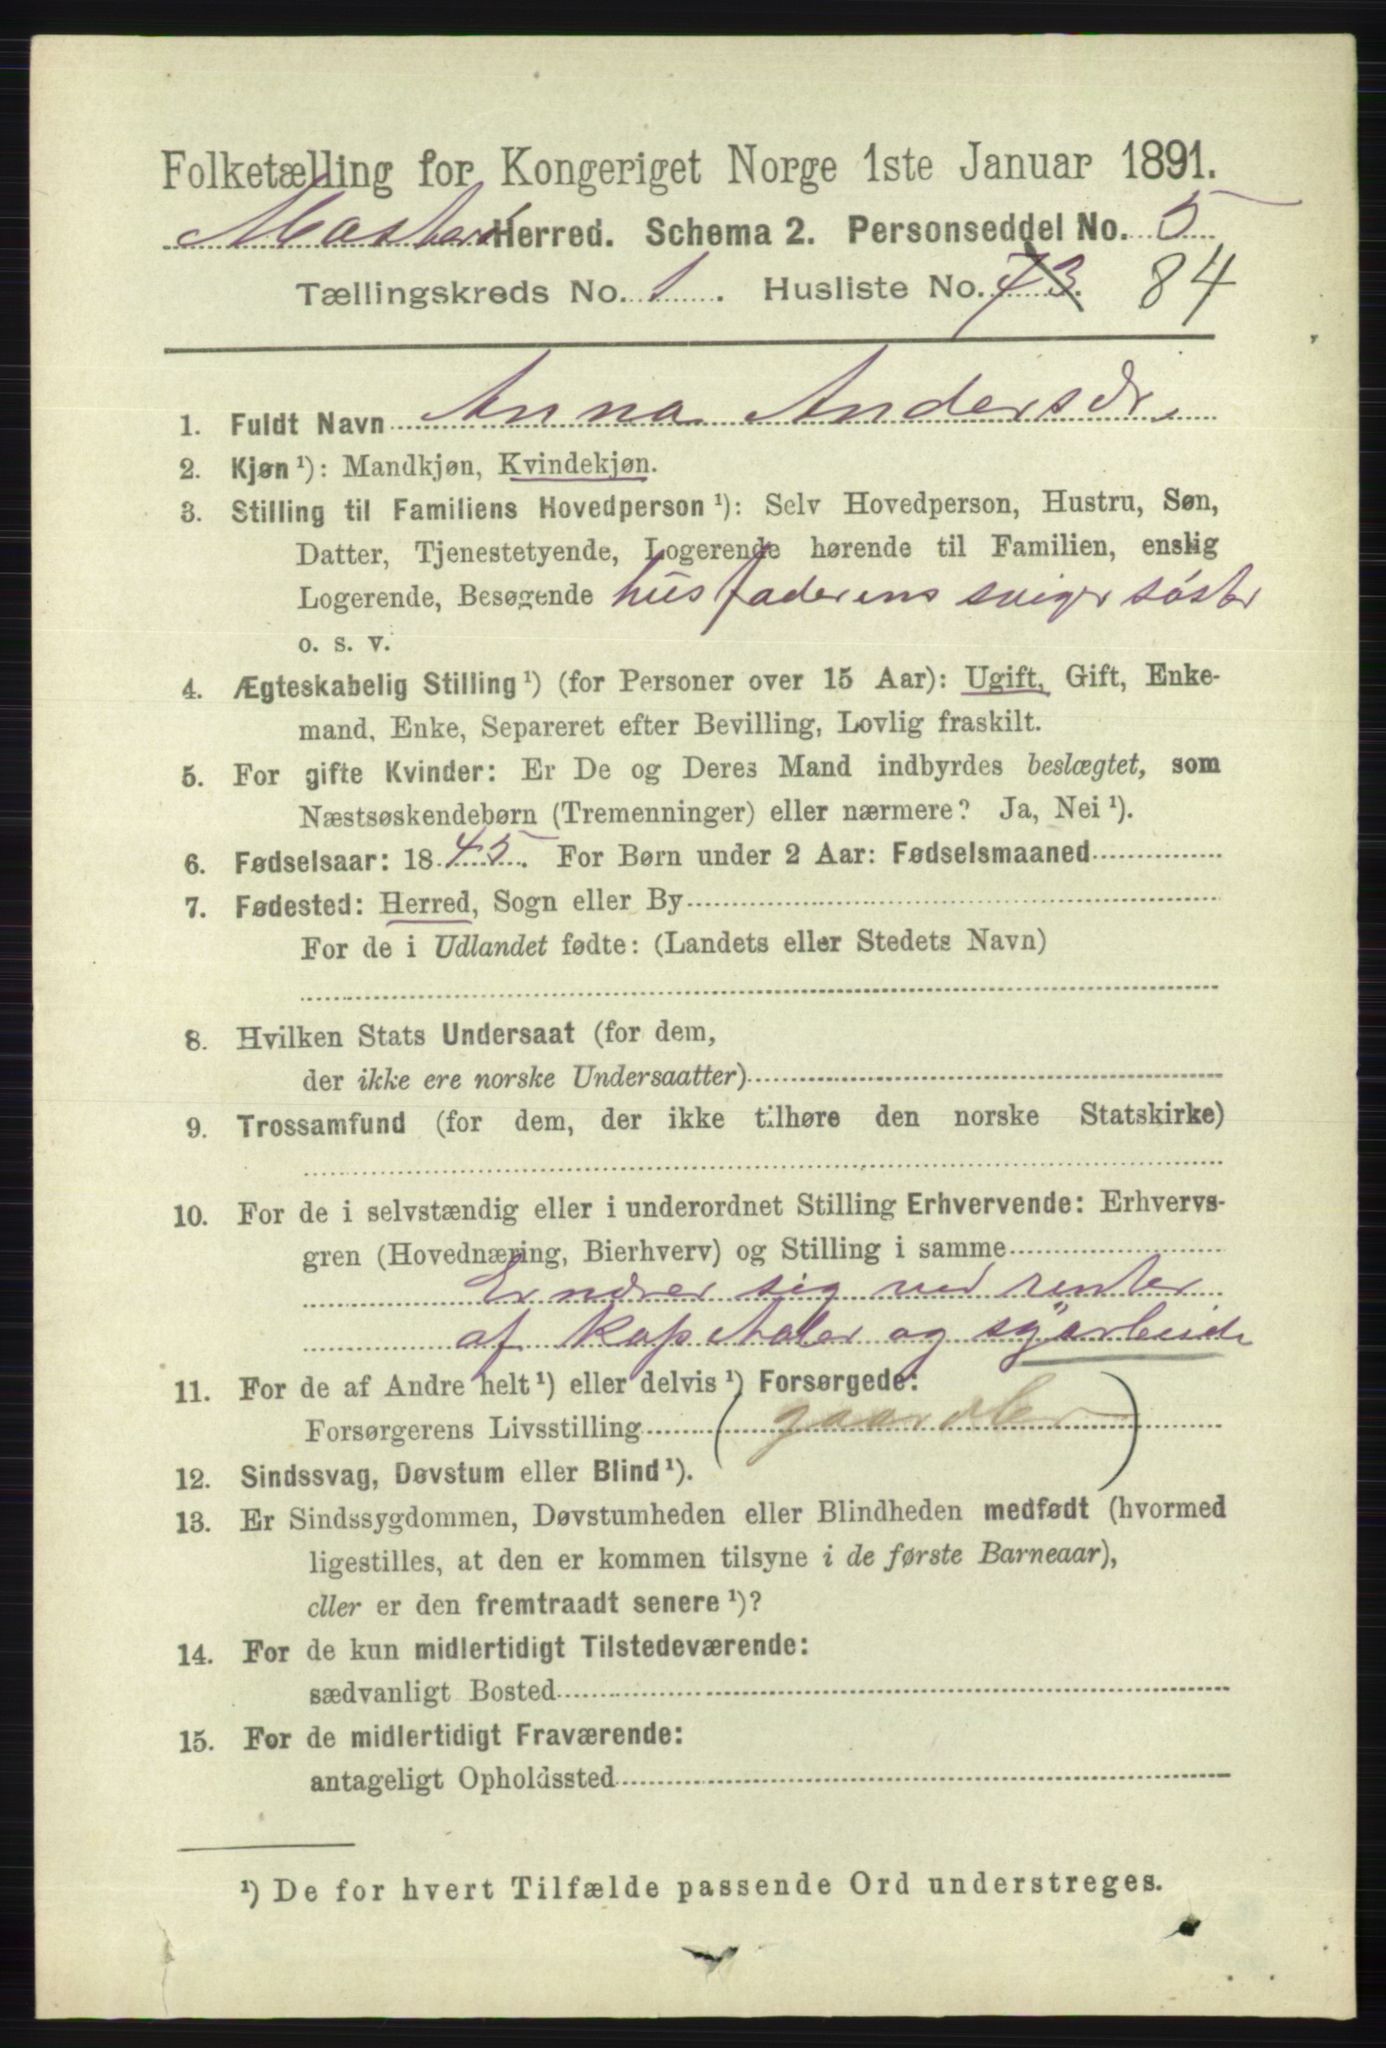 Folketælling for Kongeriget Norge 1ste Januar 1891.
Herred. Schema 2. Personseddel No. 5
Tællingskreds No. 1. Husliste No. 73. 84
1. Fuldt Navn Anna Andersdr.
2. Kjøn ¹): Mandkjøn, Kvindekjøn.
3. Stilling til Familiens Hovedperson ¹): Selv Hovedperson, Hustru, Søn,
Datter, Tjenestetyende, Logerende hørende til Familien, enslig
Logerende, Besøgende husfaderens sviger søster
o. s. v.
4. Ægteskabelig Stilling ¹) (for Personer over 15 Aar): Ugift, Gift, Enke-
mand, Enke, Separeret efter Bevilling, Lovlig fraskilt.
5. For gifte Kvinder: Er De og Deres Mand indbyrdes beslægtet, som
Næstsøskendebørn (Tremenninger) eller nærmere? Ja, Nei ¹).
6. Fødselsaar: 1845. For Børn under 2 Aar: Fødselsmaaned
7. Fødested: Herred, Sogn eller By
For de i Udlandet fødte: (Landets eller Stedets Navn)
8. Hvilken Stats Undersaat (for dem,
der ikke ere norske Undersaatter)
9. Trossamfund (for dem, der ikke tilhøre den norske Statskirke)
10. For de i selvstændig eller i underordnet Stilling Erhvervende: Erhvervs-
gren (Hovednæring, Bierhverv) og Stilling i samme
Ernærer sig ved renter
af kapitaler og syarbeide
11. For de af Andre helt ¹) eller delvis ¹) Forsørgede:
Forsørgerens Livsstilling (gaardbr)
12. Sindssvag, Døvstum eller Blind ¹).
13. Er Sindssygdommen, Døvstumheden eller Blindheden medfødt (hvormed
ligestilles, at den er kommen tilsyne i de første Barneaar),
eller er den fremtraadt senere ¹)?
14. For de kun midlertidigt Tilstedeværende:
sædvanligt Bosted
15. For de midlertidigt Fraværende:
antageligt Opholdssted
¹) De for hvert Tilfælde passende Ord understreges.